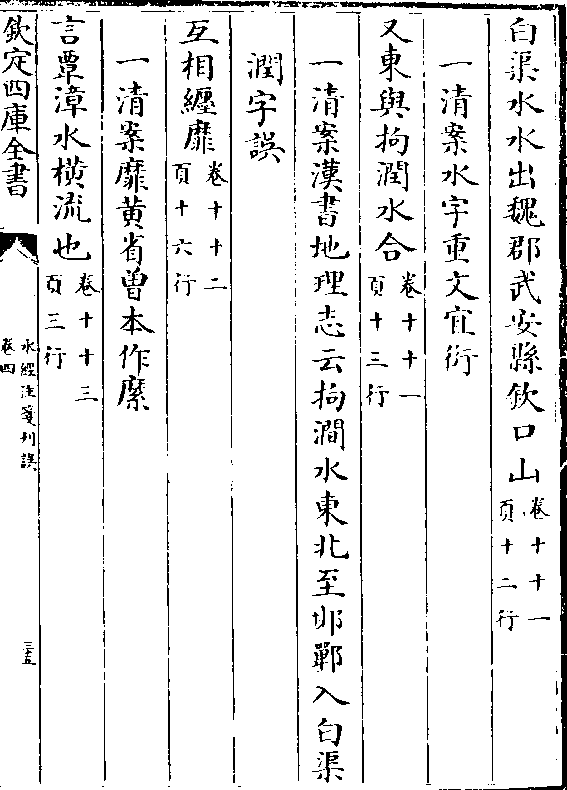 白渠水水出魏郡武安縣欽口山卷十十一
頁十二行
一清案水字重文宜衍
又東與拘澗水合卷十十一
頁十三行
一清案漢書地理志云拘澗水東北至邯鄲入白渠
潤字誤
互相纏靡卷十十二
頁十六行
一清案靡黄省曾本作縻
言覃漳水橫流也卷十十三
頁三行
欽定四庫全書
水經注箋刊誤
卷四
三五